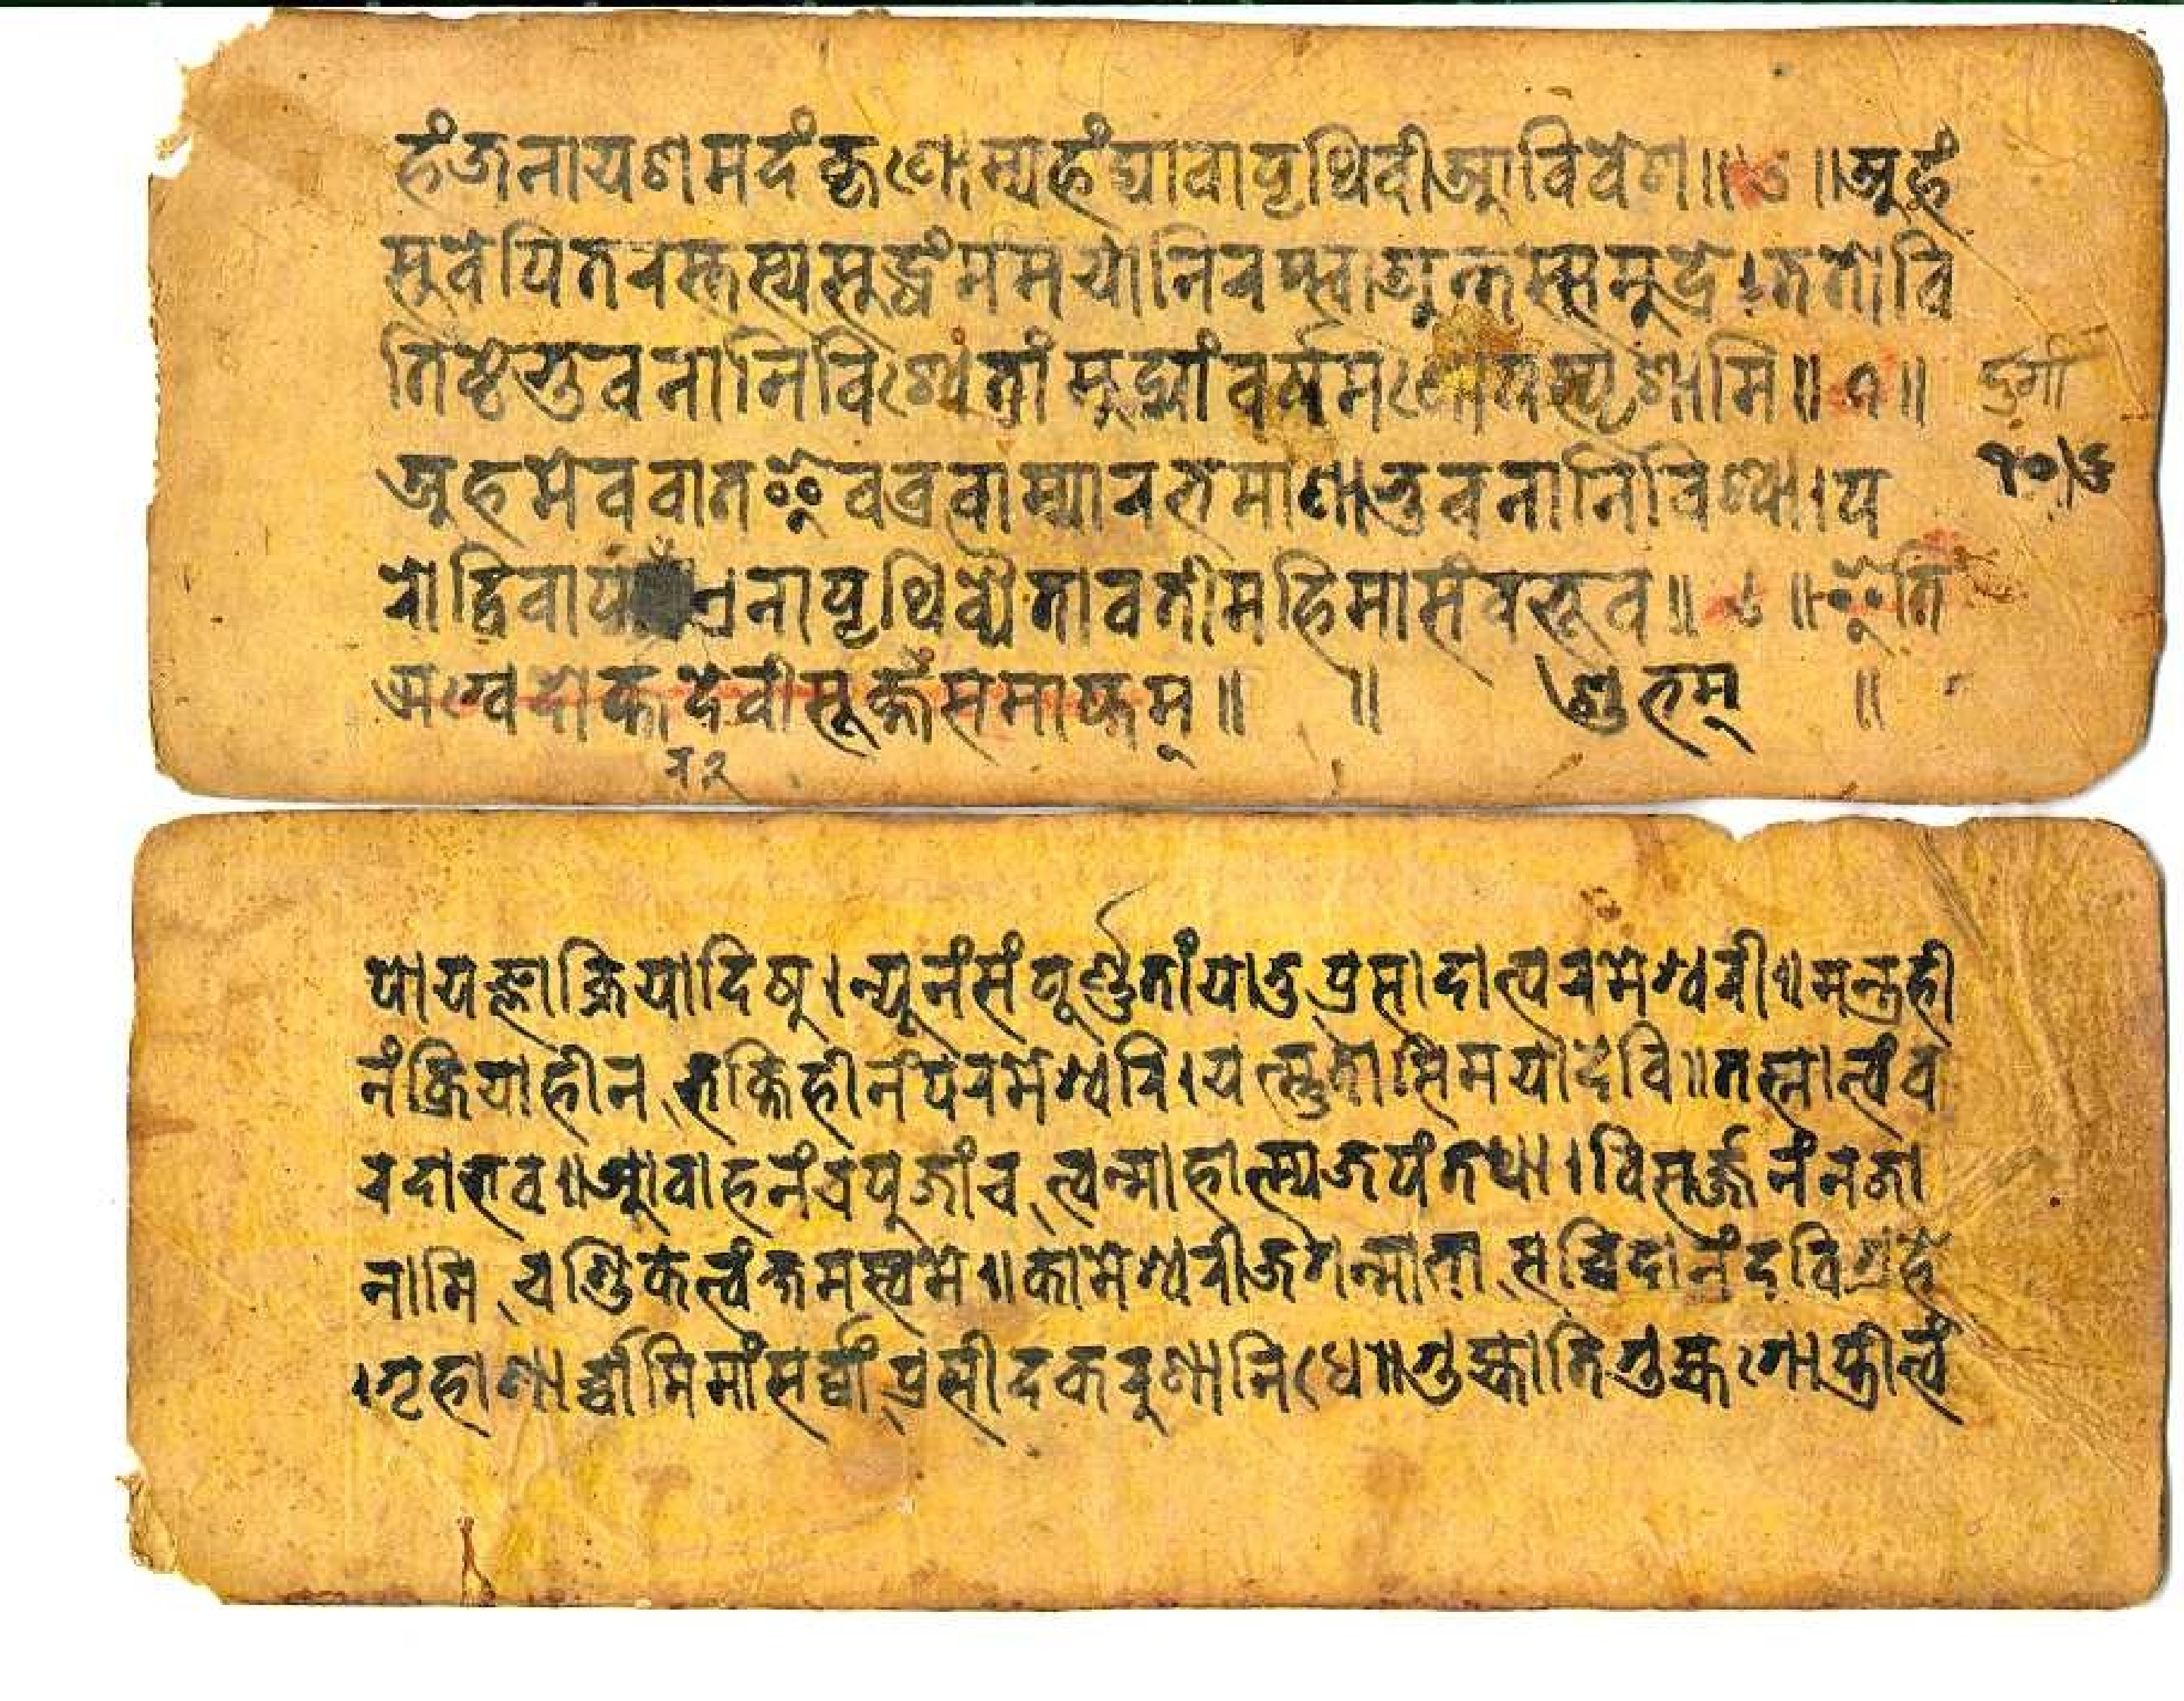 हंजनायशमदंकृणोम्यहंद्यावापृथिवीआविवेश॥७॥अहं
सुवेपितरस्तस्यसुर्द्धंममयोनिरप्स्वाअन्तस्समुद्रे।ततोवि
तिष्ठेभुवनानिविश्वेतांमूंद्यांवर्षमणोपस्पृशामि॥९॥
दुर्गा
अहमेववातइवब्रवाम्यारभमाणाभुवनानिविश्वा।प
१०।६
रोदिवाप नापृथिव्यैतावतीमहिमासंवभूव॥८॥इति
ऋग्वेदोक्तदेवीसूक्तँसमाप्तम्॥ ॥ शुभम् ॥
पोयज्ञाक्रियादिषु।न्यूनंसंपूर्णतांयातुप्रसादात्परमेश्वरी॥मन्त्रही
नंक्रियाहीन,भक्तिहीनंपरमेश्वरि।यत्स्तुतासिमयादेवि॥तस्मात्त्वंव
रदाभव॥आवाहनंचपूजांच,त्वन्माहात्म्यजपंतथा।विसर्ज्जनंनजा
नामि,चण्डिकेत्वंक्षमस्वमे॥कामेश्वरीजगन्माता,सच्चिदानंदविग्रहे
।गृहाणार्च्चामिमांसर्व्वां,प्रसीदकरुणानिधे॥गुह्यातिगुह्यगोप्त्रीत्वं